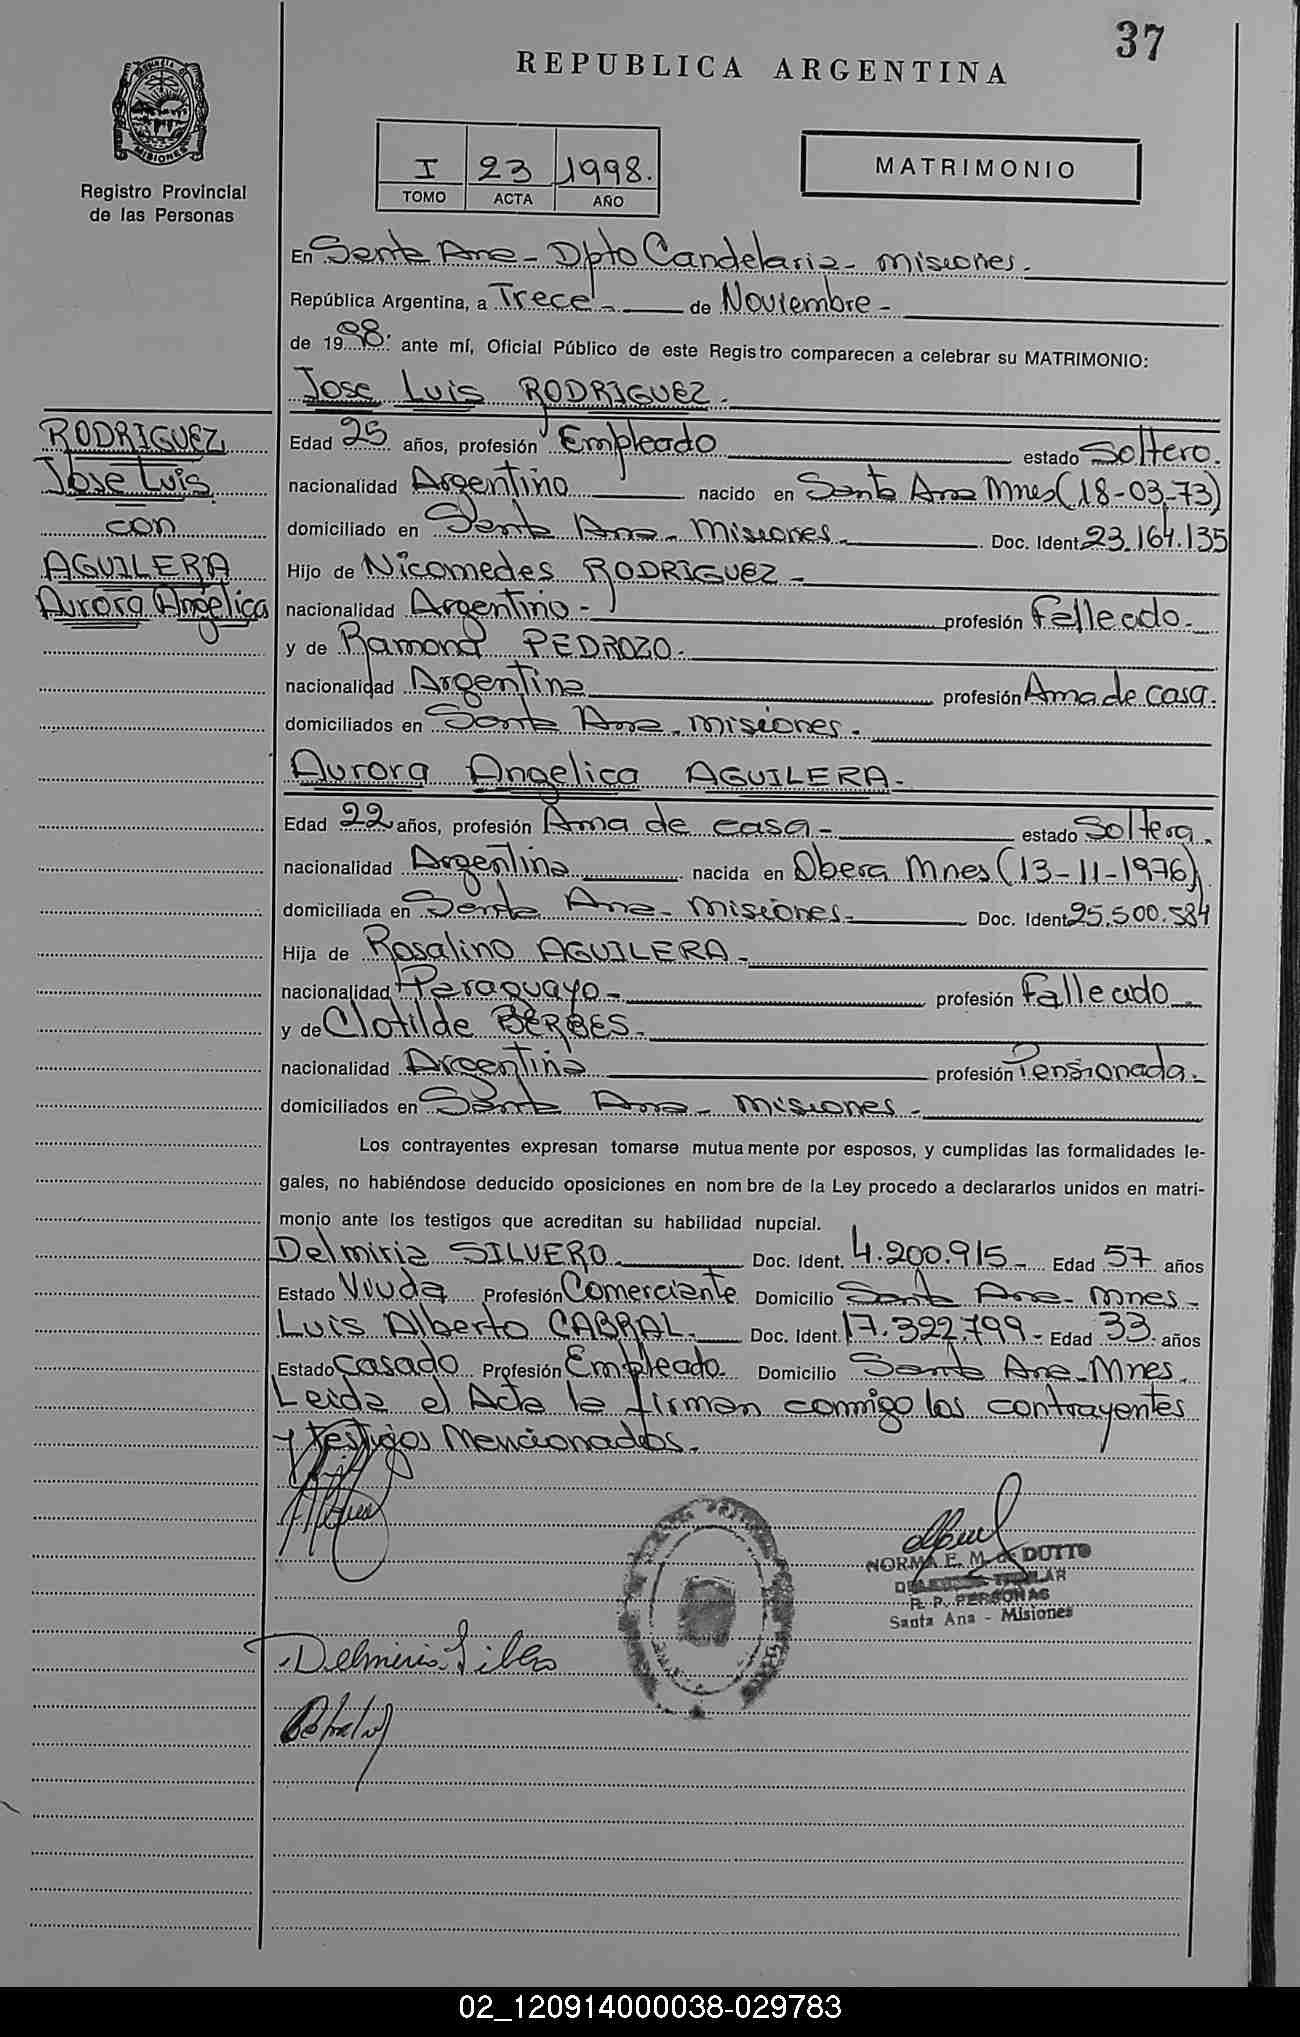 37
REPUBLICA ARGENTINA
MISIONES
Registro Provincial
de las Personas
I 23 1998.
TOMO ACTA AÑO
MATRIMONIO
En Santa Ana - Dpto Candelaria - Misiones.
República Argentina, a Trece - de Noviembre -
de 1998. ante mí, Oficial Público de este Registro comparecen a celebrar su MATRIMONIO:
Jose Luis RODRIGUEZ.
RODRIGUEZ,
Jose Luis
con
AGUILERA
Aurora Angelica
Edad 25 años, profesión Empleado estado Soltero.
nacionalidad Argentino nacido en Santa Ana Mnes (18-03-73)
domiciliado en Santa Ana - Misiones. Doc. Ident. 23.164.135
Hijo de Nicomedes RODRIGUEZ -
nacionalidad Argentino - profesión Falleado.
y de Ramona PEDROZO.
nacionalidad Argentina profesión Ama de casa.
domiciliados en Santa Ana - Misiones.
Aurora Angelica AGUILERA.
Edad 22 años, profesión Ama de casa - estado Soltera.
nacionalidad Argentina nacida en Obera Mnes (13-11-1976)
domiciliada en Santa Ana - Misiones - Doc. Ident. 25.500.584
Hija de Rosalino AGUILERA -
nacionalidad Paraguayo - profesión Falleado
y de Clotilde BERBES.
nacionalidad Argentina profesión Pensionada.
domiciliados en Santa Ana - Misiones.
Los contrayentes expresan tomarse mutuamente por esposos, y cumplidas las formalidades le-
gales, no habiéndose deducido oposiciones en nombre de la Ley procedo a declararlos unidos en matri-
monio ante los testigos que acreditan su habilidad nupcial.
Delmiria SILVERO Doc. Ident. 4.200.915 - Edad 57 años
Estado Viuda Profesión Comerciante Domicilio Santa Ana - Mnes -
Luis Alberto CABRAL. Doc. Ident. 17.322.799 - Edad 33. años
Estado Casado Profesión Empleado. Domicilio Santa Ana - Mnes.
Leida el Acta la firman conmigo los contrayentes
y testigos Mencionados.
NORMA E. M. de DUTTO
R. P. PERSONAS
Santa Ana - Misiones
02_120914000038-029783